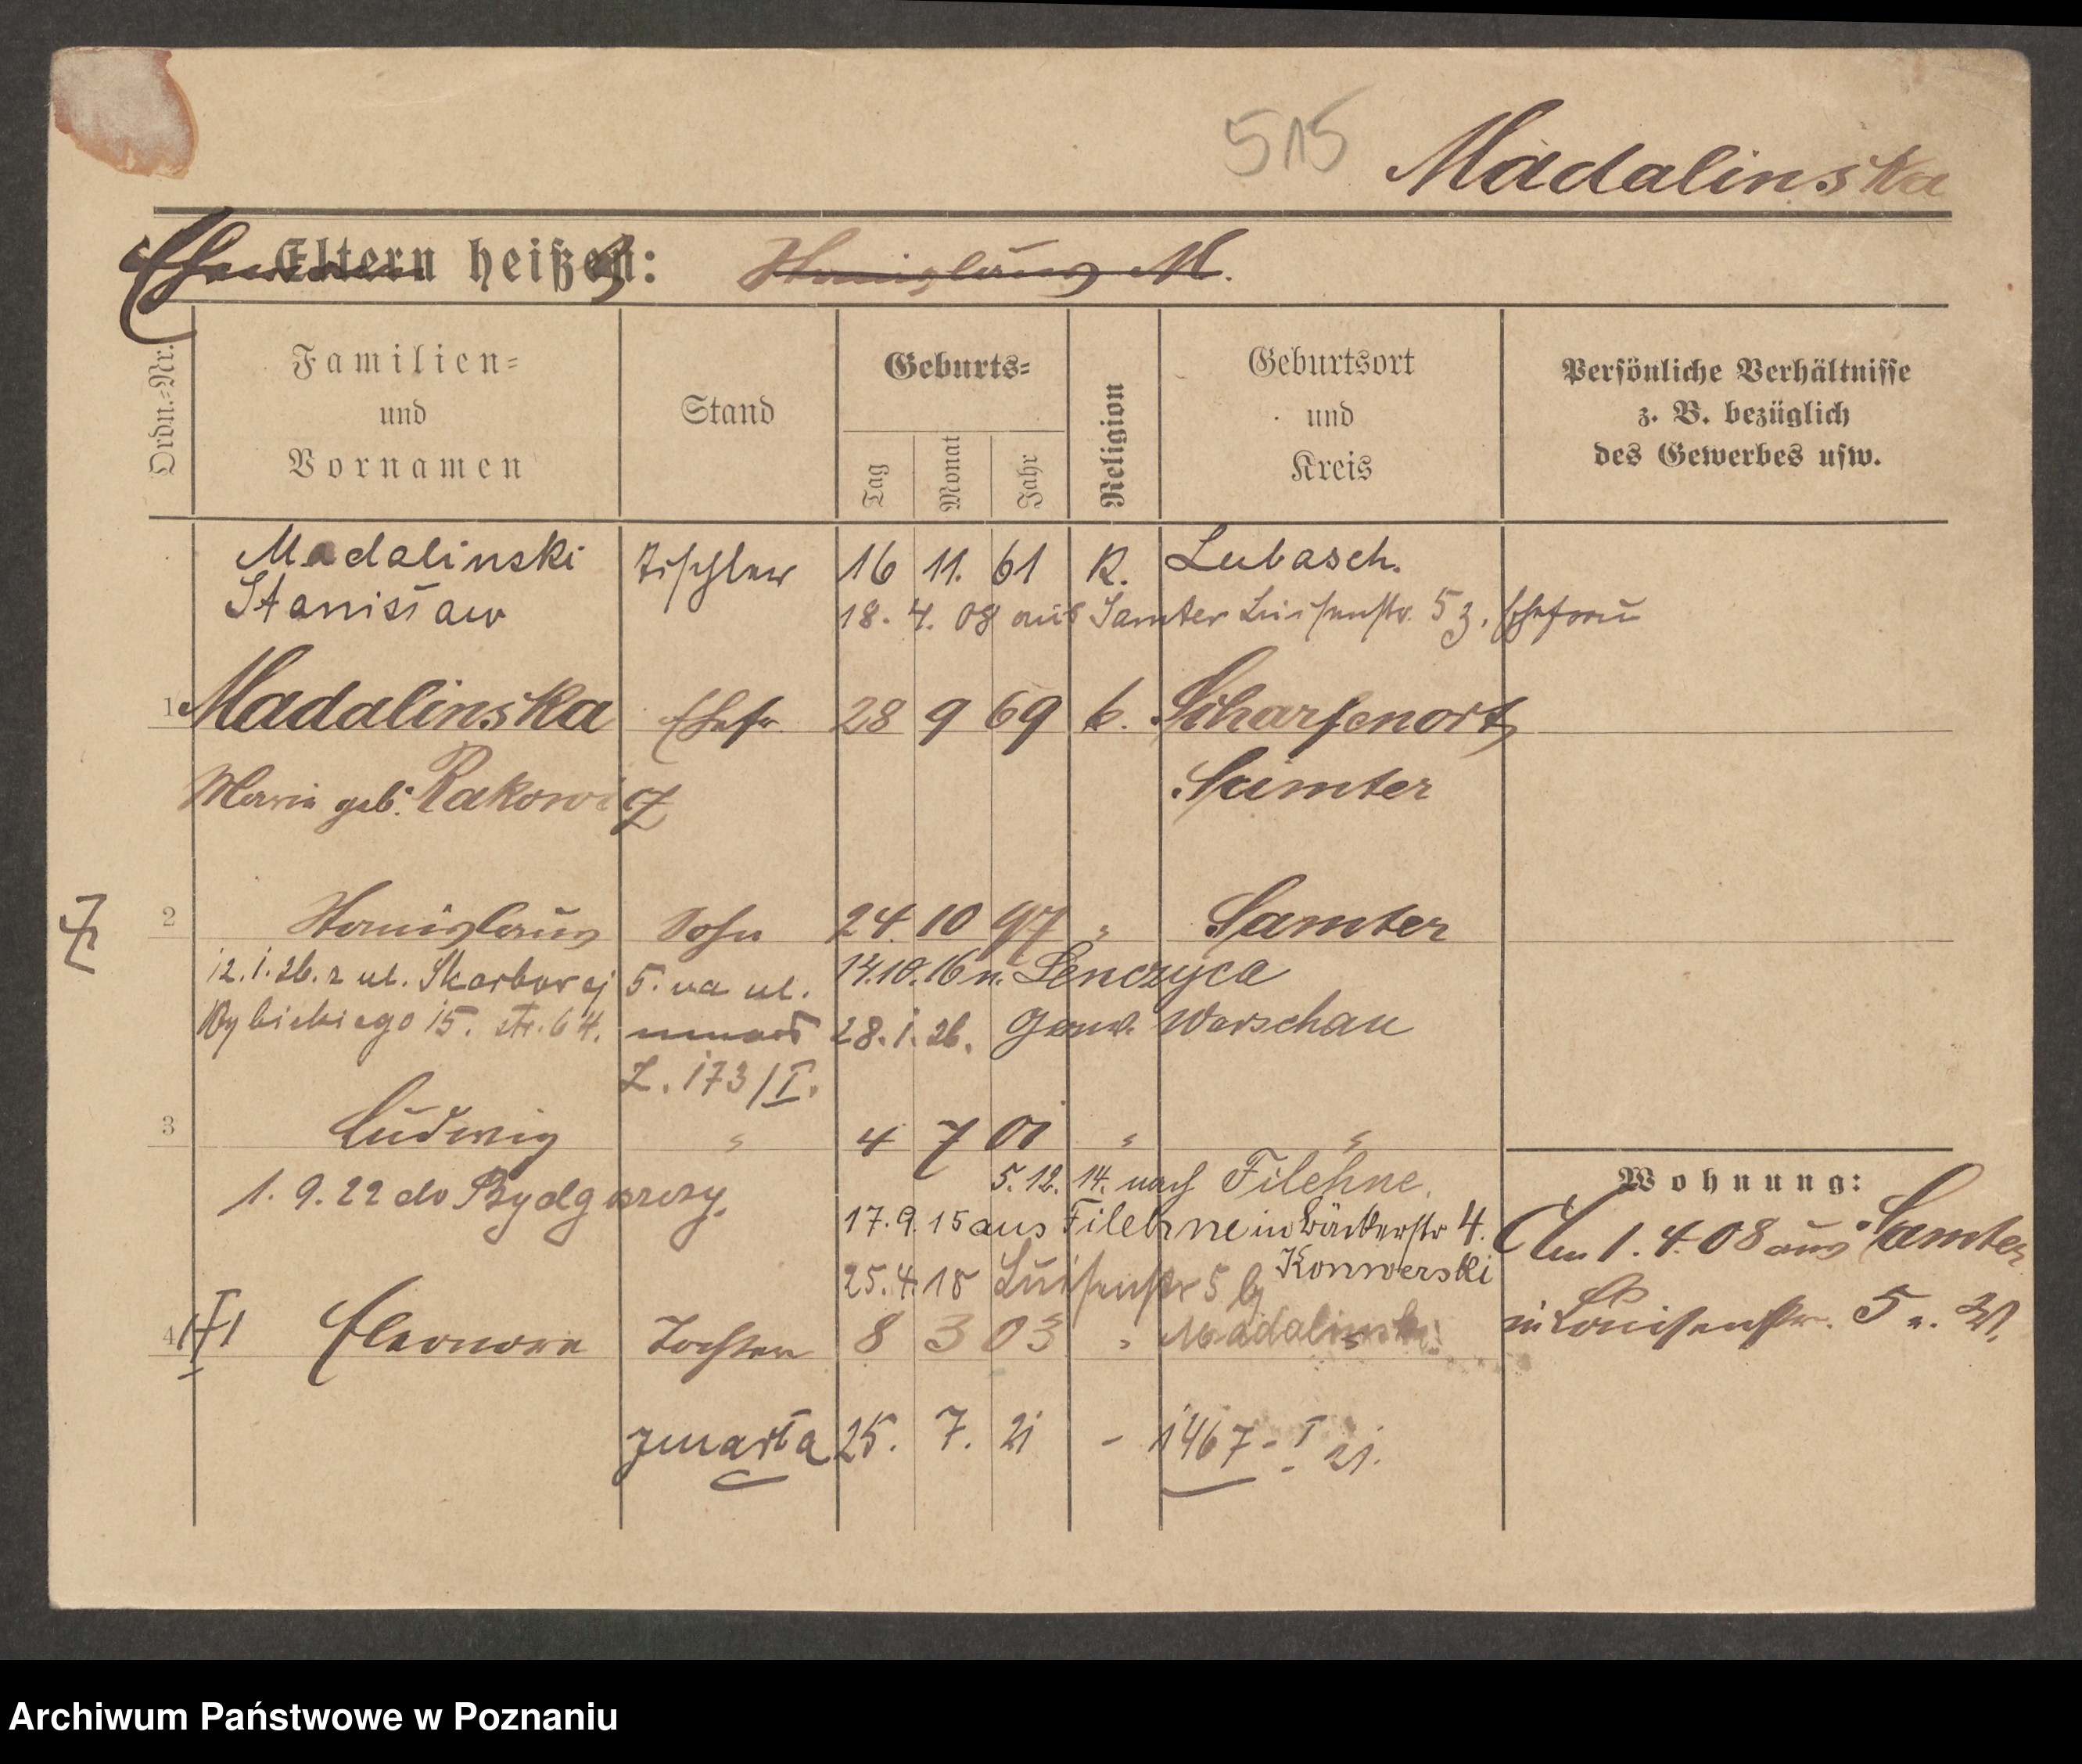 515
Madalinska
Ehemann
Eltern heißen: Stanislaus M.
Ordn.-Nr.
Familien-
und
Vornamen
Stand
Geburts-
Tag
Monat
Jahr
Religion
Geburtsort
und
Kreis
Persönliche Verhältnisse
z. B. bezüglich
des Gewerbes usw.
Madalinski Tischler 16 11. 61 K. Lubasch.
Stanisław
18. 4. 08 aus Samter Luisenstr. 5 z. Ehefrau
1 Madalinska Ehefr. 28 9 69 k. Scharfenort
Maria geb. Rakowicz Samter
2 Stanislaus Sohn 24. 10 97 " Samter
12.1.26. z ul. Skarbowej 5. na ul. 14.10.16 n. Lenczyca
Rybickiego 15. str. 64. 28.1.26. Gouv. Warschau
L. 173/I.
3 Ludwig " 4 7 01 " "
5.12.14. nach Filehne.
1. 9. 22 do Bydgoszczy.
17.9.15 aus Filehne in Bäckerstr 4.
Konwerski
25.4.18 Luisenstr 5 bj
Madalinski
4 Eleonore Tochter 8 3 03 " "
zmarła 25. 7. 21 - 1467-I 21.
Wohnung:
Am 1.4.08 aus Samter
in Louisenstr. 5 z. W.
Archiwum Państwowe w Poznaniu